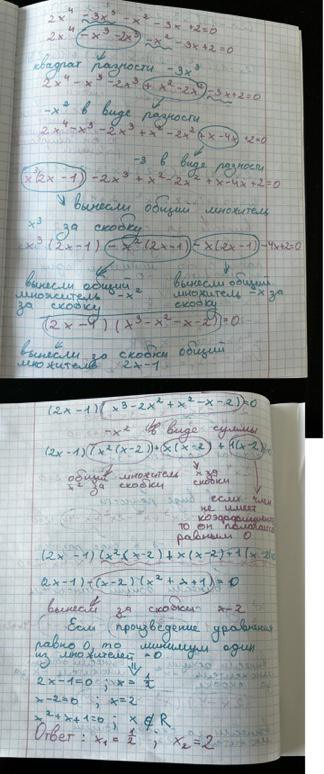 2x⁴ - 3x³ - x² - 3x + 2 = 0
2x⁴ - x³ - 2x³ - x² - 3x + 2 = 0
квадрат разности -3x³
2x⁴ - x³ - 2x³ + x² - 2x² - 3x + 2 = 0
-x² в виде разности
2x⁴ - x³ - 2x³ + x² - 2x² + x - 4x + 2 = 0
-3 в виде разности
x³(2x - 1) - 2x³ + x² - 2x² + x - 4x + 2 = 0
вынесли общий множитель
x³ за скобку
x³(2x - 1) - x²(2x - 1) - x(2x - 1) - 4x + 2 = 0
вынесли общий множитель -x² за скобку
вынесли общий множитель -x за скобку
(2x - 1)(x³ - x² - x - 2) = 0
вынесли за скобки общий
множитель 2x - 1
(2x - 1)(x³ - 2x² + x² - x - 2) = 0
-x² в виде суммы
(2x - 1)(x²(x - 2) + x(x - 2) + 1(x - 2)
общий множитель x² за скобки
x за скобки
если член не имеет коэффициент то он полагается равным 0
(2x - 1)(x²(x - 2) + x(x - 2) + 1(x - 2)
2x - 1)(x - 2)(x² + x + 1) = 0
вынесем за скобки x - 2
Если произведение уравнения
равно 0, то минимум один
из множителей = 0
2x - 1 = 0 ; x = 1/2
x - 2 = 0 ; x = 2
x² + x + 1 = 0 ; x ∉ R
Ответ: x₁ = 1/2 ; x₂ = 2